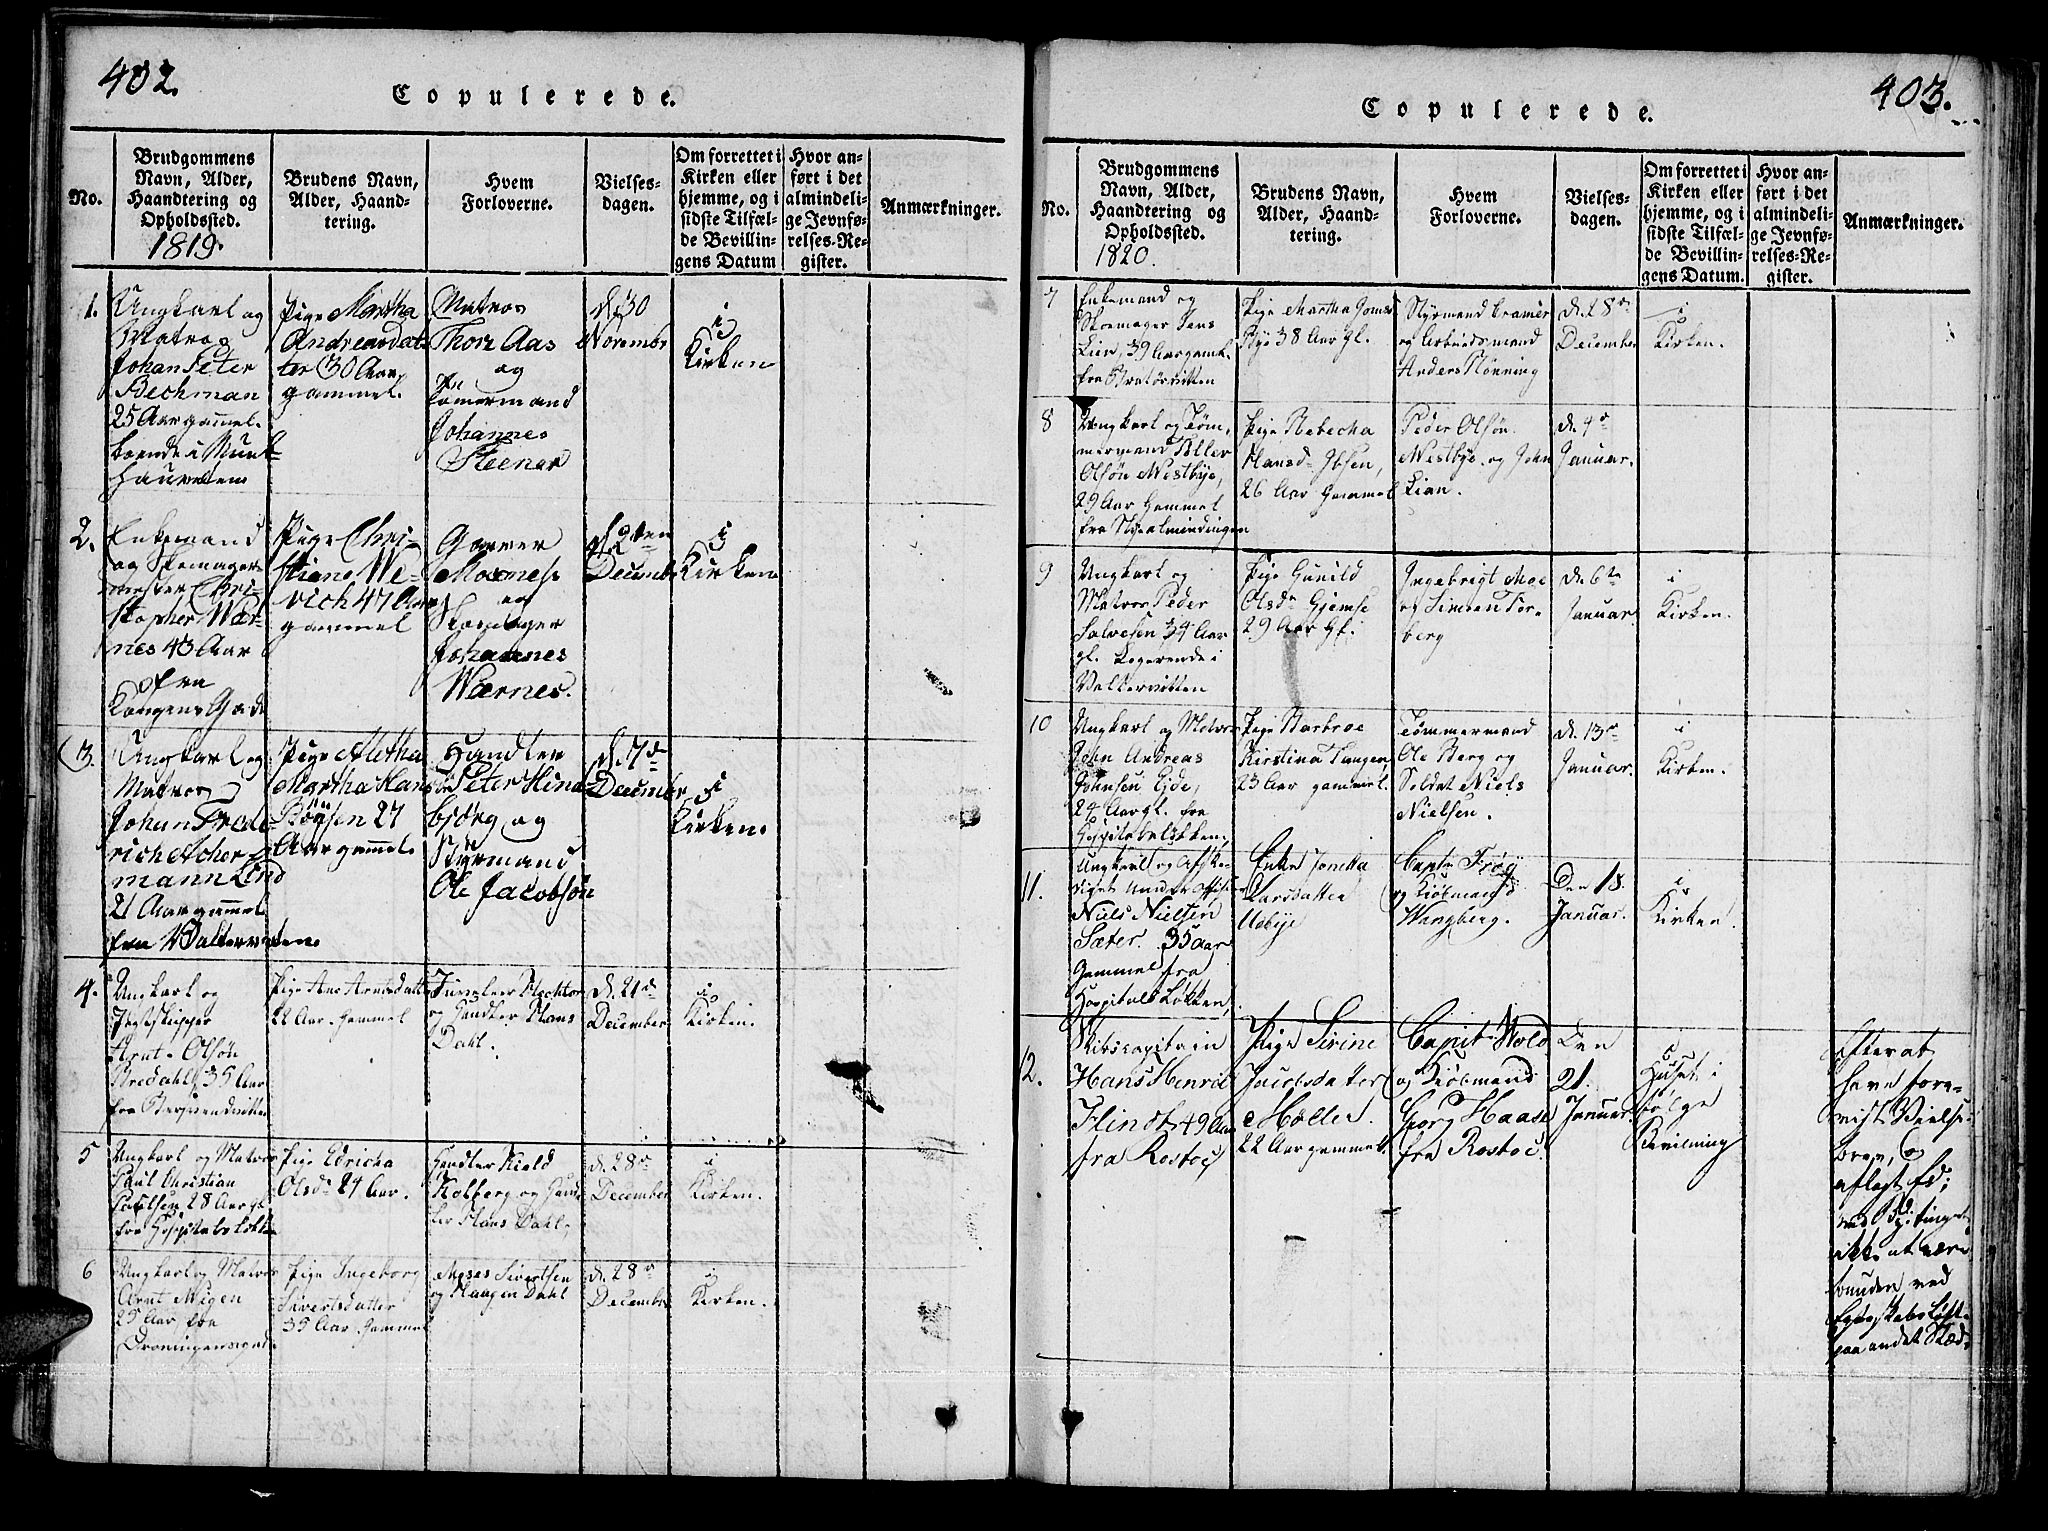 402.
Copulerede.
No.
Brudgommens
Navn, Alder,
Haandtering og
Opholdssted.
1819.
Brudens Navn,
Alder, Haand-
tering.
Hvem
Forloverne.
Vielses-
dagen.
Om forrettet i
Kirken eller
hjemme, og i
sidste Tilfæl-
de Bevillin-
gens Datum
Hvor an-
ført i det
almindeli-
ge Jevnfø-
relses-Re-
gister.
Anmærkninger.
1.
Ungkarl og
Matros
Johan Peter
Bechman
25 Aar gamel.
boende i
Pige Martha
Andreasdat-
ter 30 Aar
gammel.
Matros
Thore Aas
og
Tømermand
Johannes
Steener
d. 30
Novembr
i
Kirken
2.
Enkemand
og Skomager
mester Chri-
stopher Wær-
nes 43 Aar
fra
Kongens Gade
Pige Chri-
stiane We-
vich 47 Aar
gammel
Garver
Moxnes
og
Skomager
Johannes
Wærnes.
d. 2den
Decembr
i
Kirken
3.
Ungkarl og
Matros
Johan Frede-
rich Acher-
mann Lind
21 Aar gamel
fra Baklervetten.
Pige Aletha
Martha Hans
27
Aar gamel.
Handler
Peter Hind
bjørg og
Styrmand
Ole Jacobsøn
d. 7de
Decembr
i
Kirken.
4.
Ungkarl og
Jagtskipper
Arnt Olsøn
Bredahl, 35 Aar
fra
Pige Ane Arntsdatter
22 Aar. Gammel
Juveleer Hechtor
og Handler Hans
Dahl.
d. 21de
December
i
Kirken.
5
Ungkarl og Matros
Paul Christian
Paulsen, 28 Aar gl.
fra Hospitalsløkken
Pige Edricha
Olsdr 24 Aar.
Handler Kield
Kolberg og Hand-
ler Hans Dahl,
d. 28de
December
i
Kirken.
6
Ungkarl og Matros
Arnt Wigen
25 Aar, fra
Dronningensgade.
Pige Ingeborg
Sivertsdatter
35 Aar Gammel
Moses Sivertsen
og Haagen Dahl
d. 28de
December
i
Kirken.
403.
Copulerede.
No.
Brudgommens
Navn, Alder,
Haandtering og
Opholdssted.
1820.
Brudens Navn,
Alder, Haand-
tering.
Hvem
Forloverne.
Vielses-
dagen.
Om forrettet i
Kirken eller
hjemme, og i
sidste Tilfæl-
de Bevillin-
gens Datum.
Hvor an-
ført i det
almindeli-
ge Jevnfø-
relses-Re-
gister.
Anmærkninger.
7
Enkemand og
Skomager Jens
Lien, 39 Aar gamel.
fra
Pige Martha Jonsd
Rye 38 Aar gl.
Styrmand Cramer
og Arbeidsmand
Anders Rønning
d. 28de
December
i
Kirken.
8
Ungkarl og Tøm-
mermand Eller
Olsøn Westbye,
29 Aar Gammel
fra
Pige Rebecha
Hansdr Ibsen,
26 Aar Gammel
Peder Olsøn
Westbye og John
Lian.
d. 4de
Januar.
9
Ungkarl og
Matros Peder
Salvesen 34 Aar
gl. Logerende i
Pige Gunild
Olsdr Gjemse
29 Aar Gl.
Ingebrigt Moe
og Simon Tor-
berg
d. 6te
Januar
i
Kirken.
10
Ungkarl og Matros
John Andreas
Johnsen Eide,
24 Aar gl. fra
Hospitalsløkken,
Pige Barbroe
Kirstina Tangen
23 Aar gammel.
Tømmermand
Ole Berg og
Soldat Niels
Nielsen.
d. 13de
Januar.
i
Kirken.
11.
Ungkarl og Afske-
diget Underofficer
Niels Nielsen
Sæter. 35 aar
Gammel fra
Hospitals Løkken,
Enke Jonetta
Larsdatter
Udbye
Captn Frøg
og Kiøbmand
Wangberg.
Den 18.
Januar.
i
Kirken
12.
Skibscapitain
Hans Henrich
Flindt 49 Aar
fra Rostoc,
Pige Sirine
Jacobsdatter
Møller.
22 Aar gammel.
Capit. Wold
og Kiøbmand
Georg Haase
fra Rostoc.
Den
21.
Januar
i
Huset i
følge
Bevilning
Efter at
have fore-
vist Vielse-
brev, og
aflagt Ed,
ikke at være
bunden ved
Egteskabs Løfte
paa andet Sted.